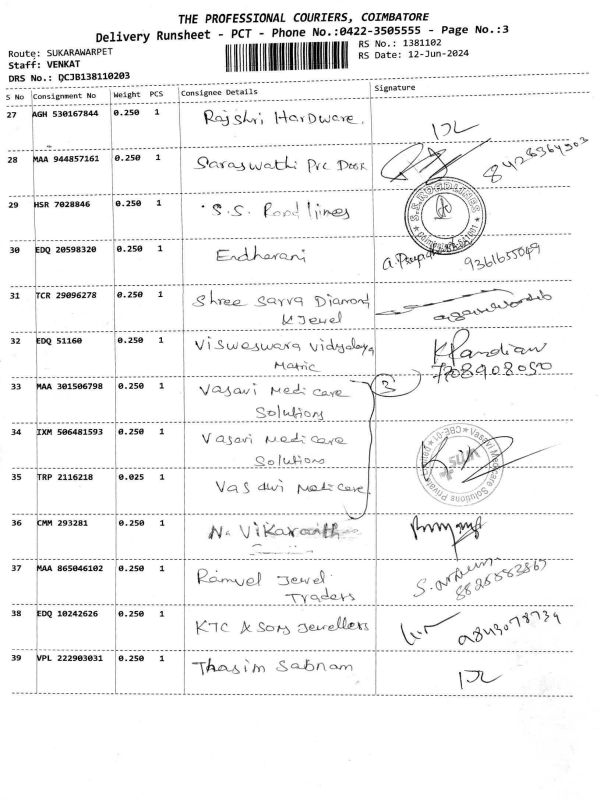 THE PROFESSIONAL COURIERS, COIMBATORE
Delivery Runsheet - PCT - Phone No.:0422-3505555 - Page No.:3
Route: SUKARAWARPET
RS No.: 1381102
Staff: VENKAT
RS Date: 12-Jun-2024
DRS No.: QCJB138110203
S No Consignment No Weight PCS Consignee Details Signature
27 AGH 530167844 0.250 1 Rajshri Hardware.
28 MAA 944857161 0.250 1 Saraswathi Pvc Door 8428364503
29 HSR 7028846 0.250 1 S.S. Roadlines
S.S.ROADLINES
30 EDQ 20598320 0.250 1 Endherani 9361655049
31 TCR 29096278 0.250 1 Shree Sarva Diamond
& Jewel
32 EDQ 51160 0.250 1 Visweswara Vidyalaya K Pandian
Matric 7708908050
33 MAA 301506798 0.250 1 Vasavi Medicare 3
Solutions
34 IXM 506481593 0.250 1 Vasavi Medicare
Solutions
Vasavi Medicare Solutions Private Limited CBE-01
35 TRP 2116218 0.025 1 Vasavi Medicare
36 CMM 293281 0.250 1 N. Vikaranth
37 MAA 865046102 0.250 1 Ramvel Jewel
Traders 8825583867
38 EDQ 10242626 0.250 1 KTC & Sons Jewellers 9843078739
39 VPL 222903031 0.250 1 Thasim Sabnam